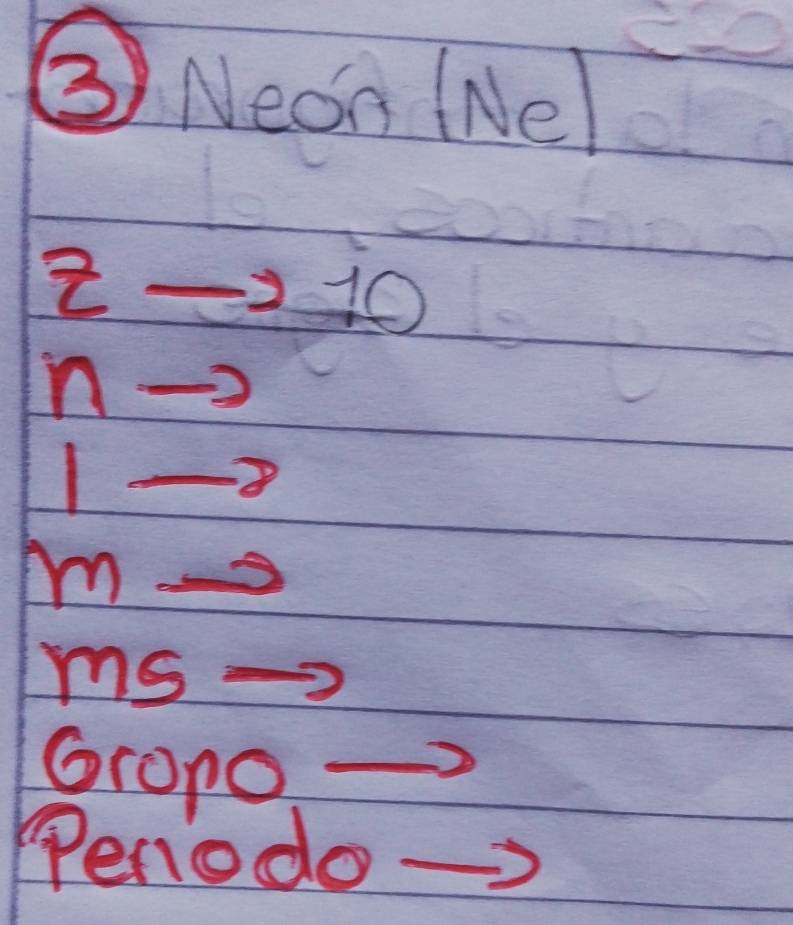 3 Neón (Ne)
z → 10
n →
l →
m →
ms →
Grupo →
Periodo →